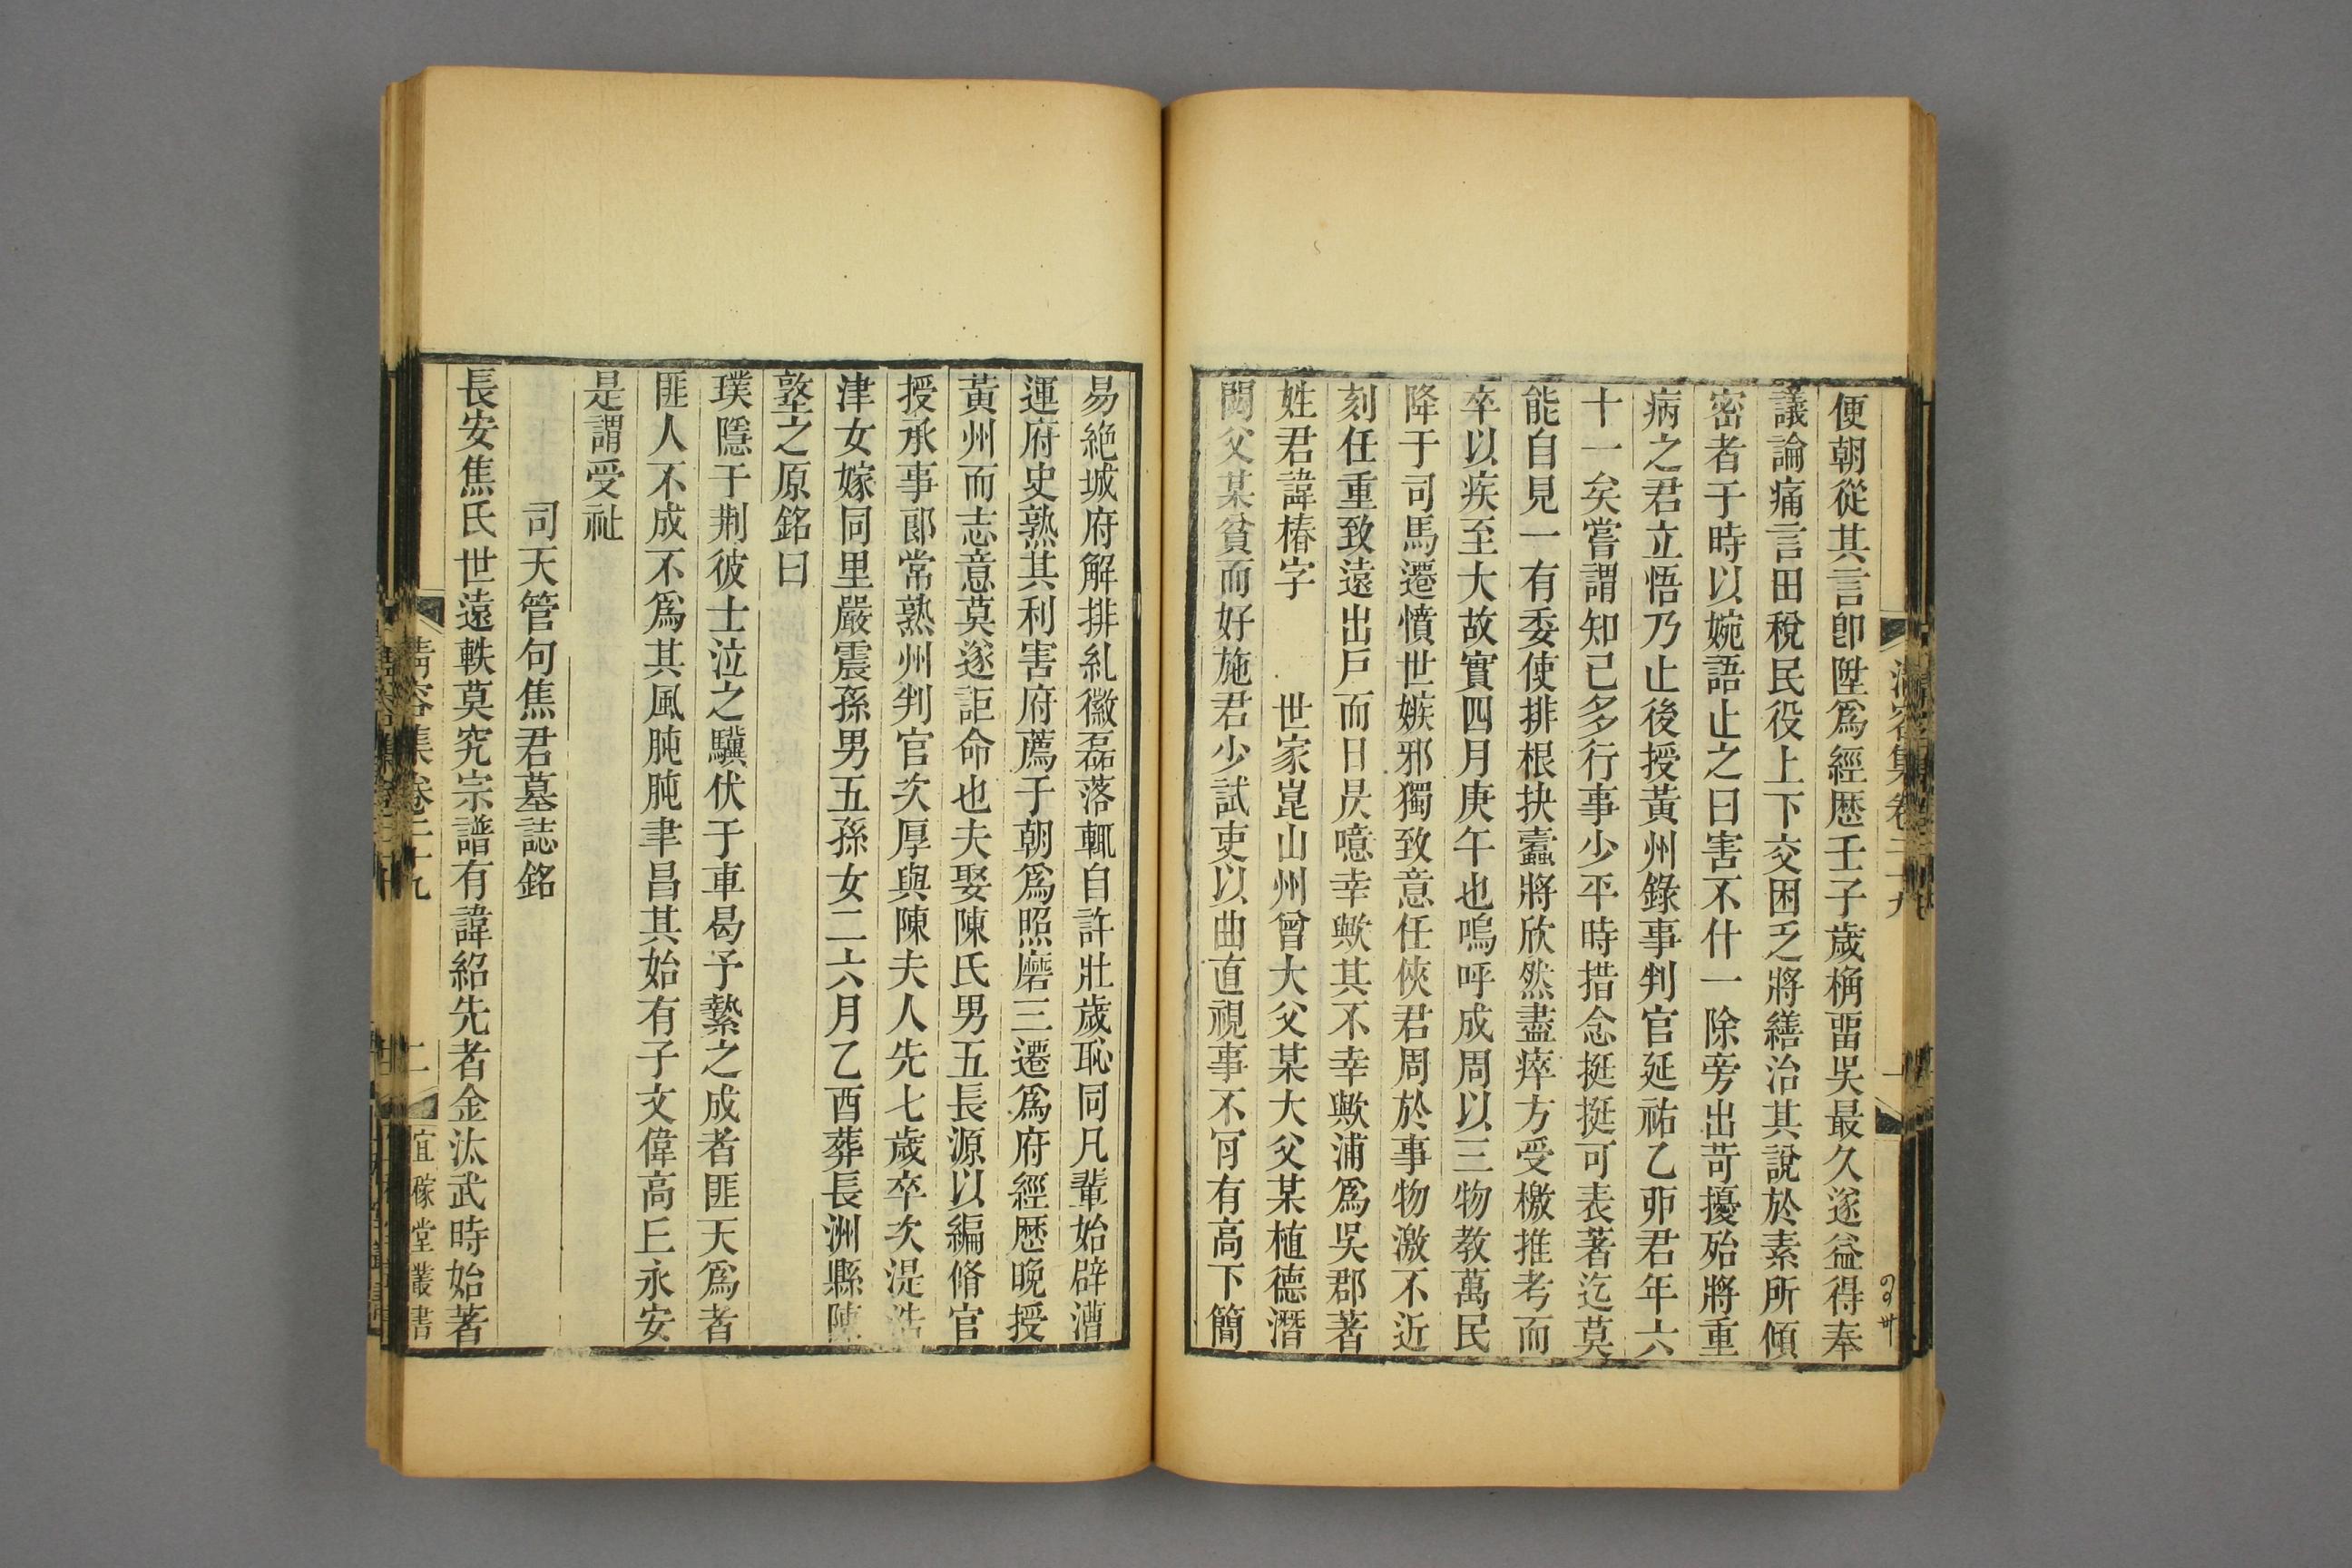 便朝從其言卽陞爲經歷壬子歲桷畱吳最久遂益得奉
議論痛言田稅民役上下交困乏將繕治其說於素所傾
密者于時以婉語止之曰害不什一除旁出苛擾殆將重
病之君立悟乃止後授黃州錄事判官延祐乙丣君年六
十一矣嘗謂知己多行事少平時措念挺挺可表著迄莫
能自見一有委使排根抉蠹將欣然盡瘁方受檄推考而
卒以疾至大故實四月庚午也嗚呼成周以三物教萬民
降于司馬遷憤世嫉邪獨致意任俠君周於事物激不近
刻任重致遠出戶而日昃噫幸歟其不幸歟浦爲吳郡著
姓君諱椿字　世家崑山州曾大父某大父某植德潛
閟父某貧而好施君少試吏以曲直視事不肎有高下簡
易絶城府解排糺徽磊落輒自許壯歲恥同凡輩始辟漕
運府史熟其利害府薦于朝爲照磨三遷爲府經歷晚授
黃州而志意莫遂詎命也夫娶陳氏男五長源以編脩官
授承事郎常熟州判官次厚與陳夫人先七歲卒次湜浩
津女嫁同里嚴震孫男五孫女二六月乙酉葬長洲縣陳
墪之原銘曰
璞隱于荆彼士泣之驥伏于車曷予縶之成者匪天爲者
匪人不成不爲其風肫肫聿昌其始有子文偉高丘永安
是謂受祉
司天管句焦君墓誌銘
長安焦氏世遠軼莫究宗譜有諱紹先者金汰武時始著
清容集卷二十九
二
宜稼堂叢書